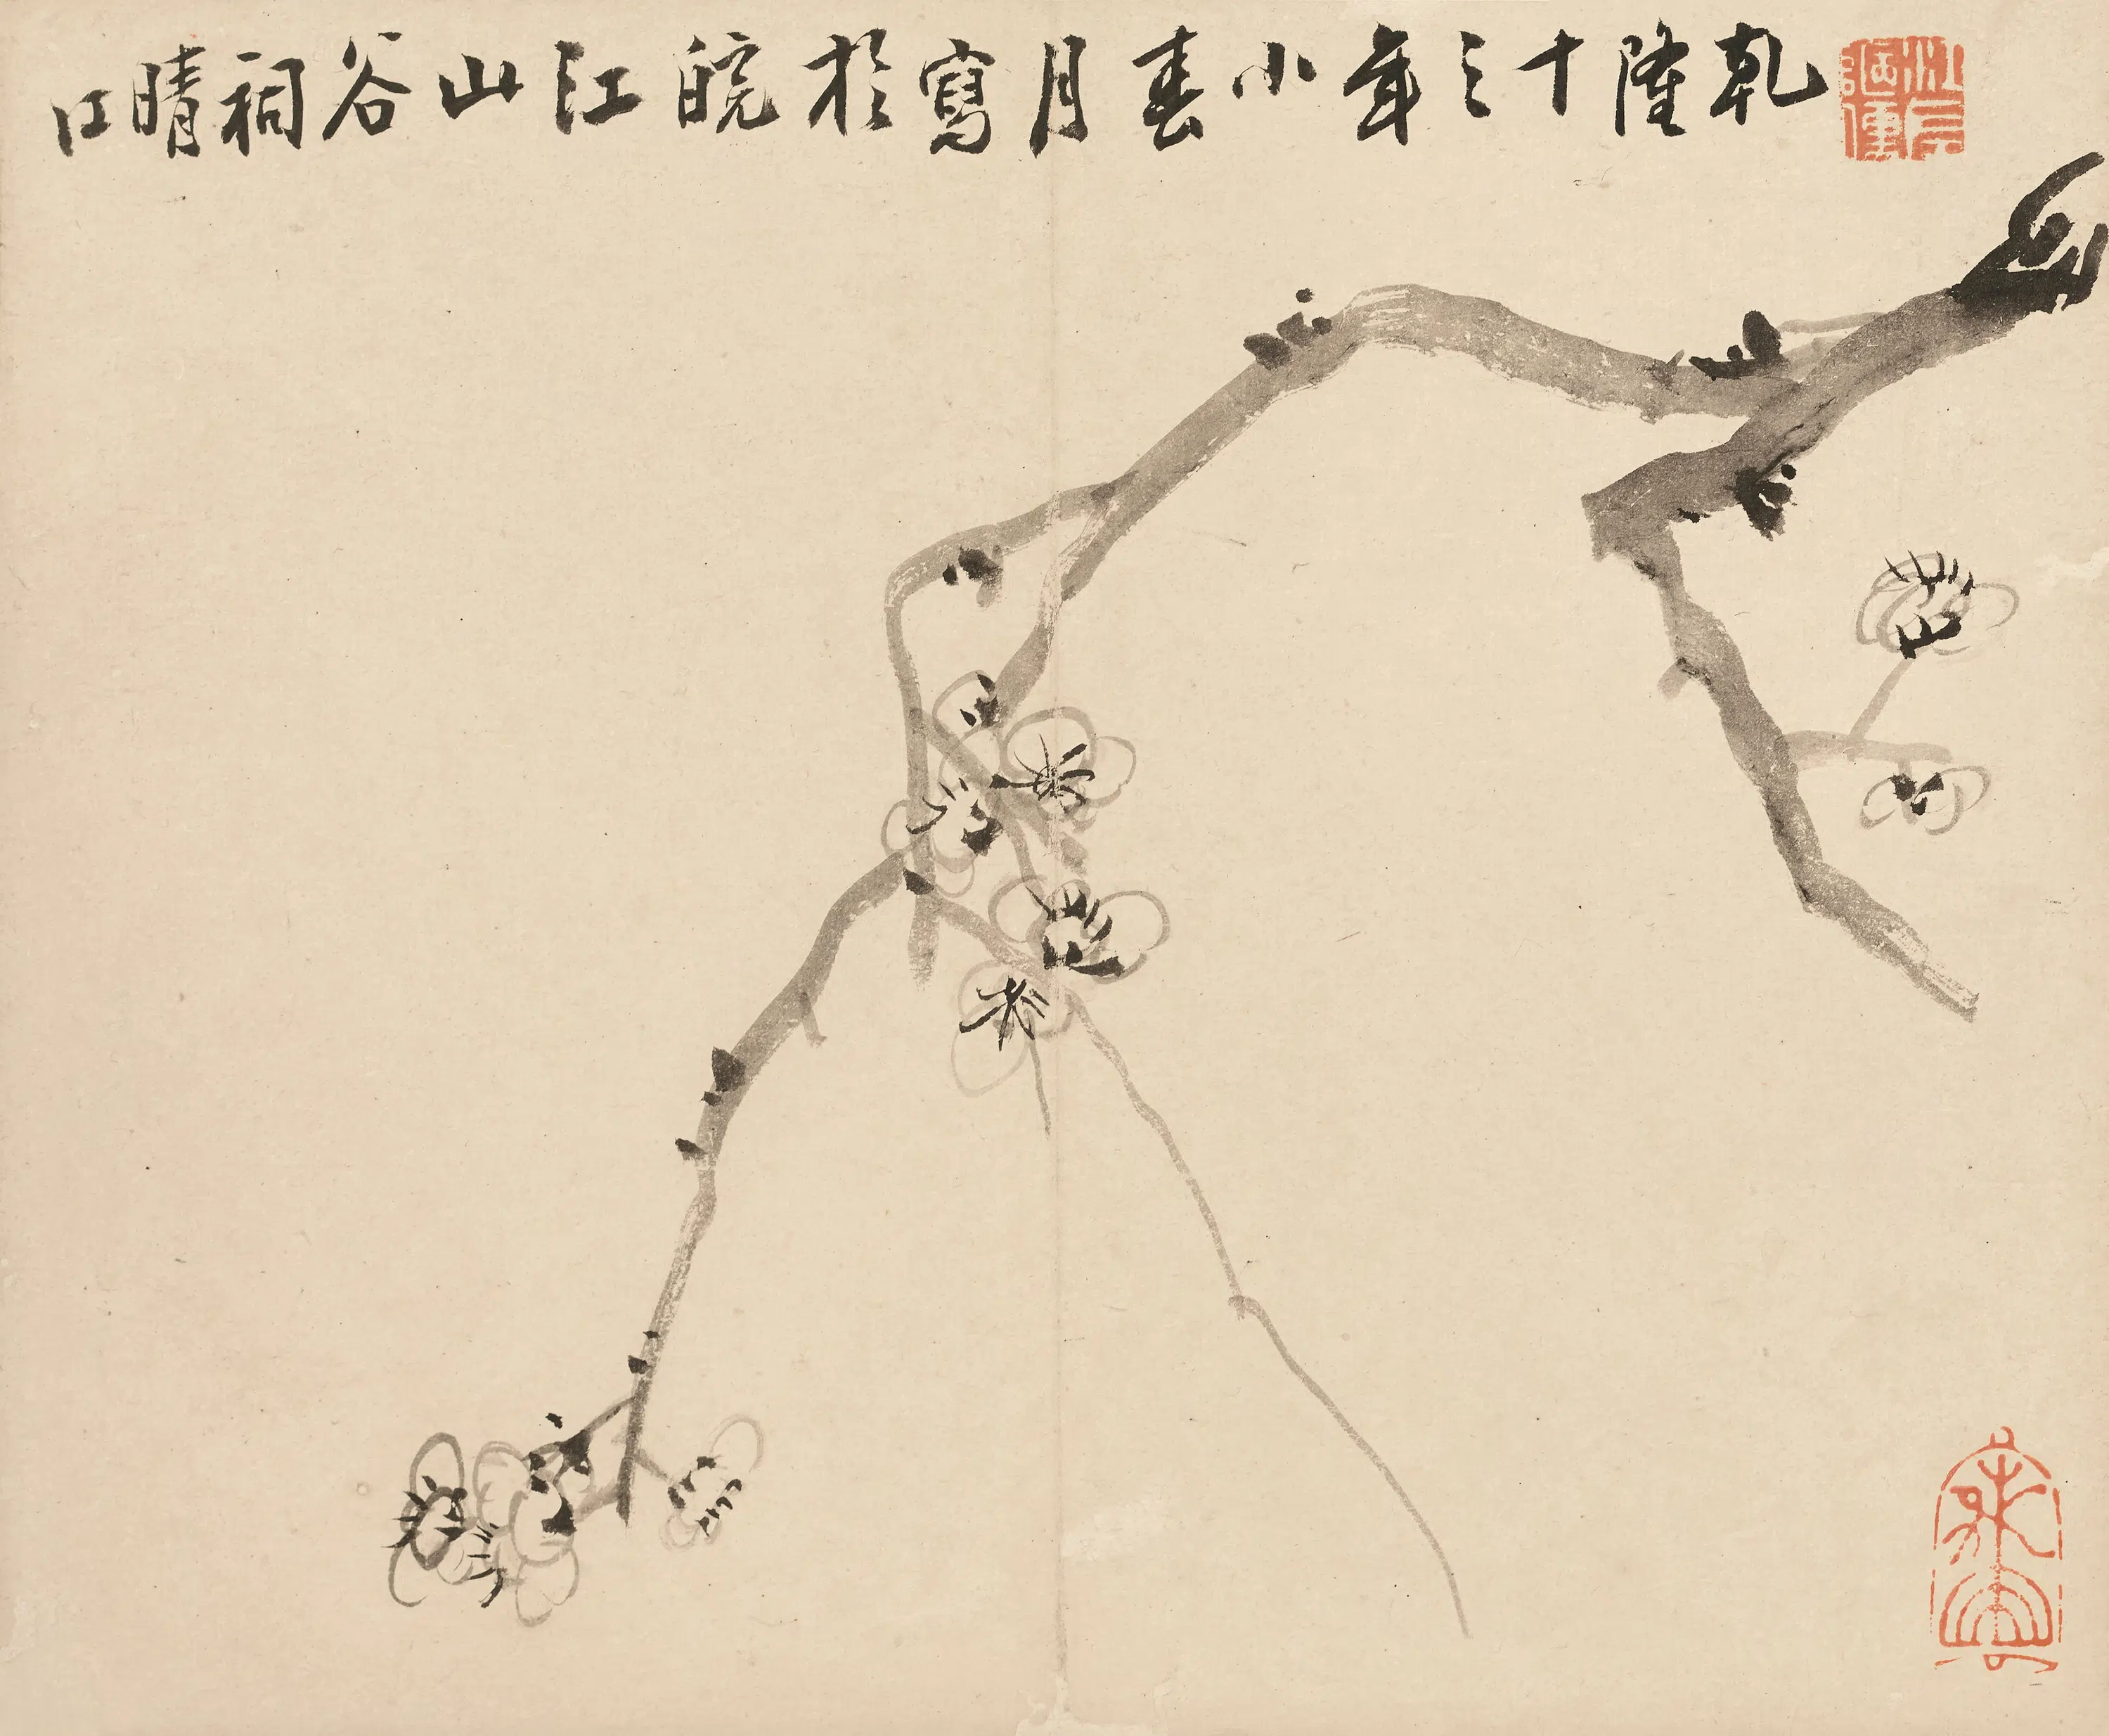 乾隆十三年小春月寫於皖江山谷祠晴江